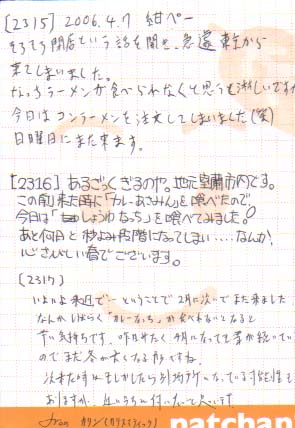 [2315] 2006.4.7 紺ペー
そろそろ閉店という話を聞き、急遽東京から
来てしまいました。
なっちラーメンが食べられなくと思うと淋しいですが
今日はコーンラーメンを注文してしまいました(笑)
日曜日にまた来ます。
[2316] あるごっくぎるのや。地元室蘭市内です。
この前来た時に「カレーあさみん」を喰べたので、
今日は「しょうゆなっち」を喰べてみました!
あと何日と秒よみ段階になってしまい……なんか
心さびしい春でございます。
[2317]
いよいよ来週で…ということで2月に次いでまた来ました
なんかしばらく「カレーなっち」が食べれないとなると
気持ちです。昨日やたく4月になっても雪が続いてい
のでまだ冬が
次来た時は もしかしたら
おりますが、
from カツン(カリスティック)
patchan